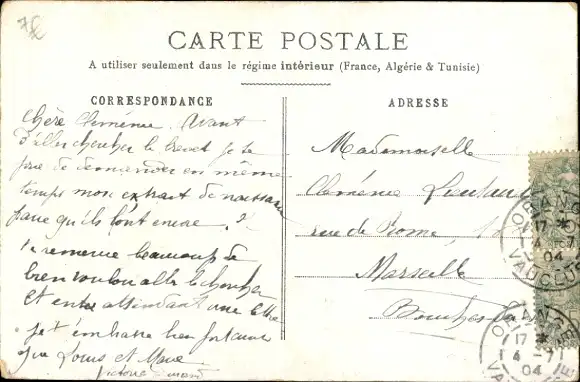 CARTE POSTALE
A utiliser seulement dans le régime intérieur (France, Algérie & Tunisie)
CORRESPONDANCE
chère Clémence. Avant
d'aller chercher le brevet je te
prie de demander en même
temps mon extrait de naissance
parce qu'ils l'ont encore.
Je remercie beaucoup de
bien vouloir aller le chercher
Et en attendant une lettre
je t'embrasse bien
que Louis et
Victoire
ADRESSE
Mademoiselle
Clémence
rue de Rome
Marseille
Bouches
ORANGE
17 *
4 - 7
04
VAUCLUSE
ORANGE
17 *
4 - 7
04